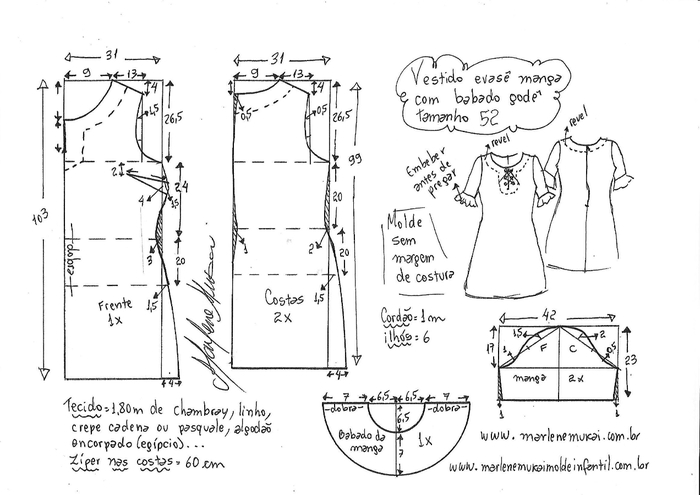 31
9
13
4
1,5
26,5
103
2
24
4
1,5
3
20
1,5
dobra
Frente
1x
4
Marlene Mukai
31
9
13
4
0,5
0,5
26,5
99
20
1
2
20
1,5
Costas
2x
4
Vestido evasê manga
com babado godê
tamanho 52
revel
revel
Embeber
antes de
pregar
Molde
sem
margem
de costura
Cordão = 1m
ilhós = 6
42
1,5
2
17
1
F
C
0,5
23
manga
2x
1
1
Tecido = 1,80m de chambray, linho,
crepe cadena ou pasquale, algodão
encorpado (egípcio)...
Zíper nas costas = 60 cm
7
6,5
6,5
7
-dobra-
-dobra-
6,5
Babado da
manga
7
1x
www.marlenemukai.com.br
www.marlenemukaimoldeinfantil.com.br